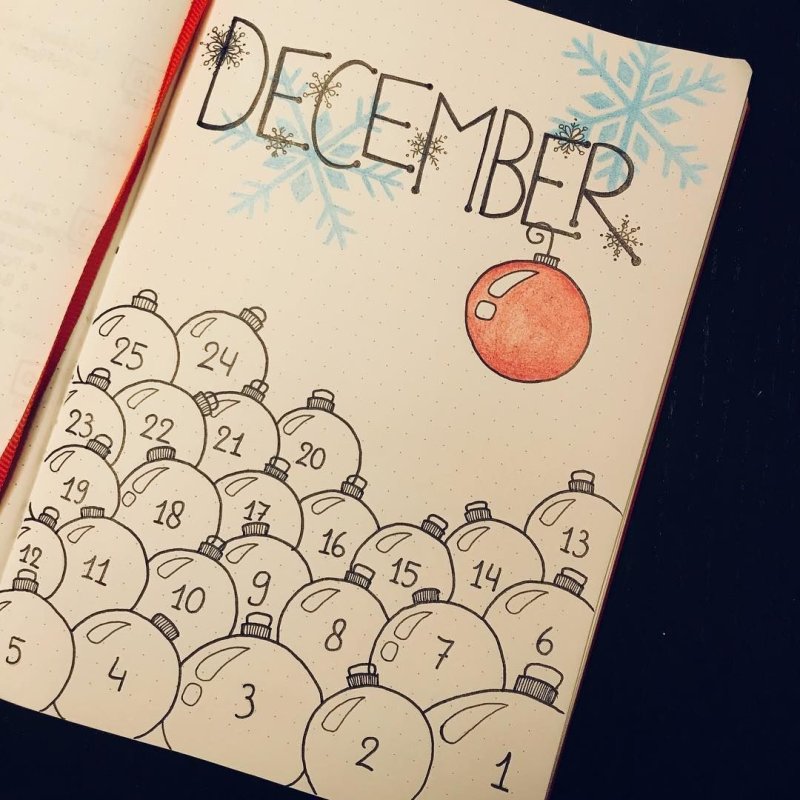 DECEMBER
25 24
23 22 21 20
19 18 17 16 15 14 13
12 11 10 9 8 7 6
5 4 3 2 1